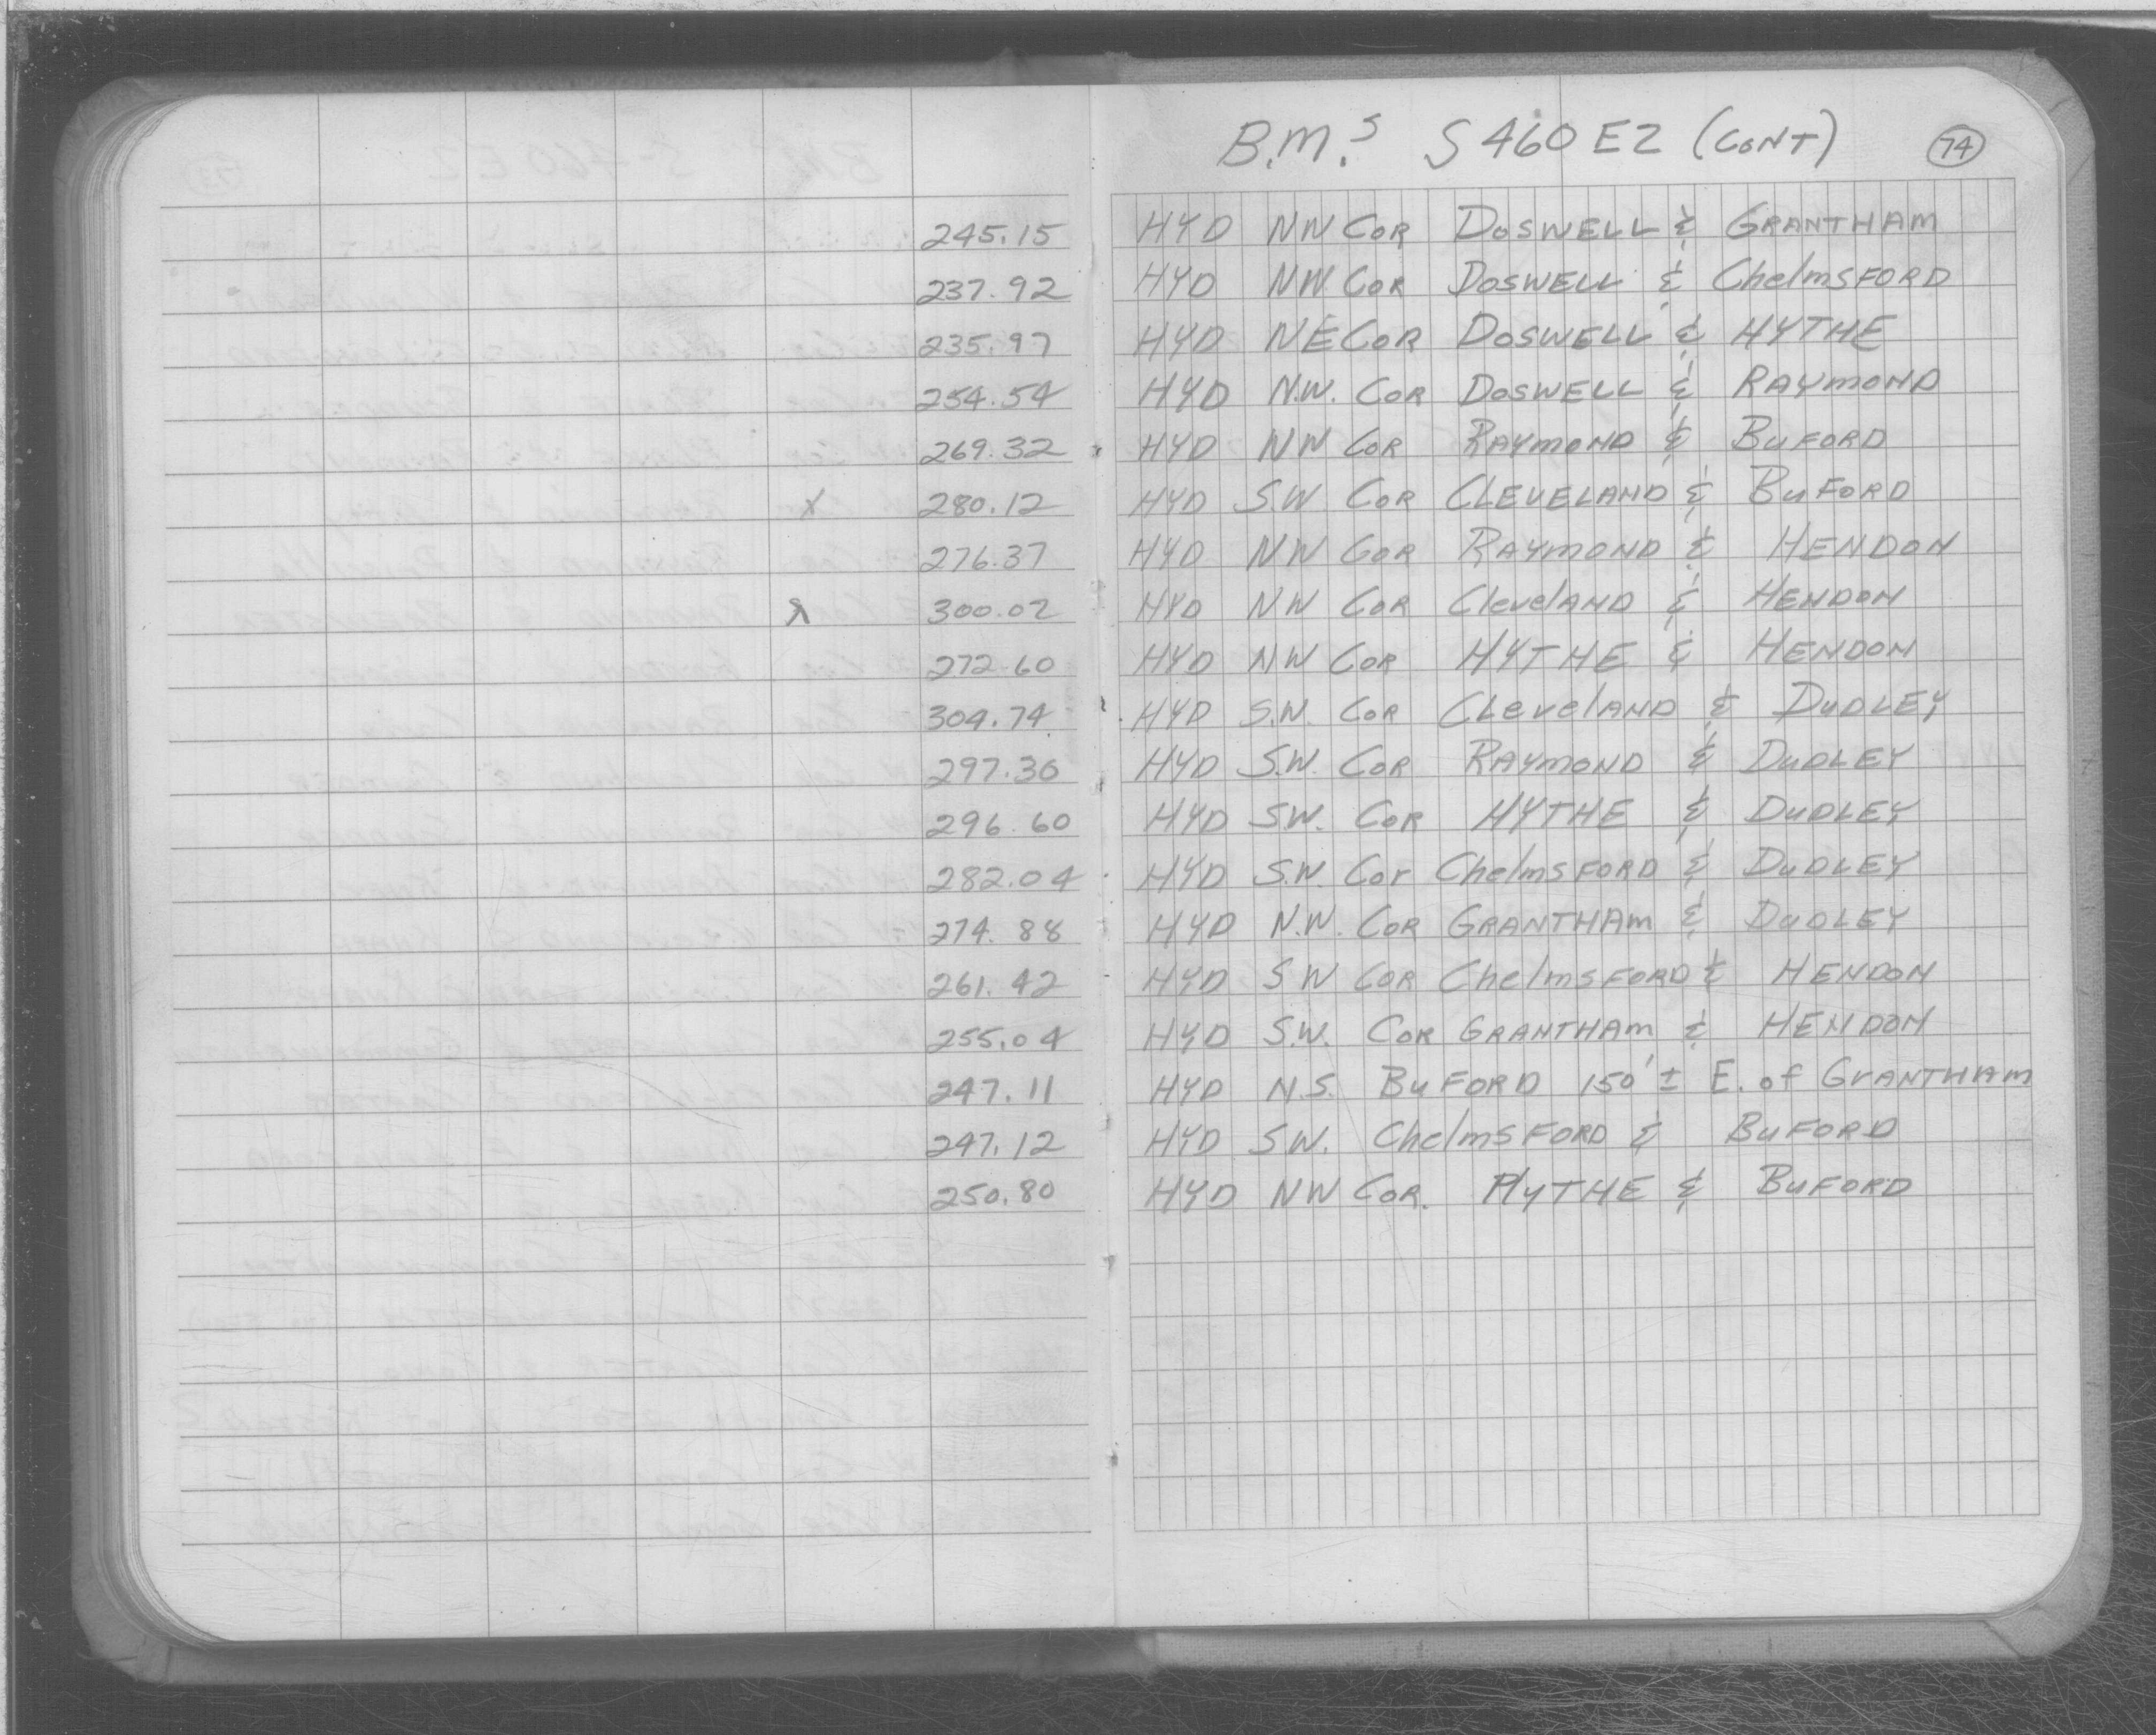 B.M.s S460E2 (CONT) 74
245.15 HYD NW COR DOSWELL & GRANTHAM
237.92 HYD N.W. COR DOSWELL & ChelmsFORD
235.97 HYD NE COR DOSWELL & HYTHE
254.54 HYD N.W. COR DOSWELL & RAYMOND
269.32 HYD NW COR RAYMOND & BUFORD
X 280.12 HYD S.W. COR CLEVELAND & BUFORD
276.37 HYD NW COR RAYMOND & HENDON
300.02 HYD NW COR CleveLAND & HENDON
272.60 HYD NW COR HYTHE & HENDON
304.74 HYD S.W. COR CLeveLAND & DUDLEY
297.36 HYD S.W. COR RAYMOND & DUDLEY
296.60 HYD S.W. COR HYTHE & DUDLEY
282.04 HYD S.W. Cor ChelmsFORD & DUDLEY
274.88 HYD N.W. COR GRANTHAM & DUDLEY
261.42 HYD SW COR ChelmsFORD & HENDON
255.04 HYD S.W. COR GRANTHAM & HENDON
247.11 HYD N.S. BUFORD 150'± E. of GrANTHAM
247.12 HYD SW. ChelmsFORD & BUFORD
250.80 HYD NW COR. HYTHE & BUFORD